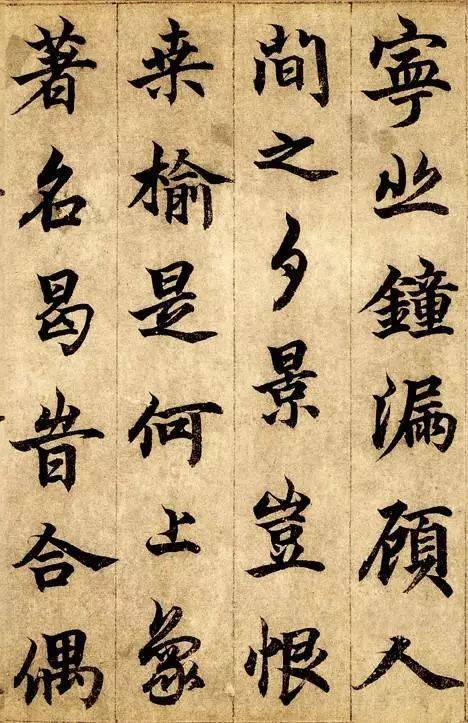 寧止鐘漏頋人
間之夕景豈恨
桒榆是何上象
著名曷旹合偶